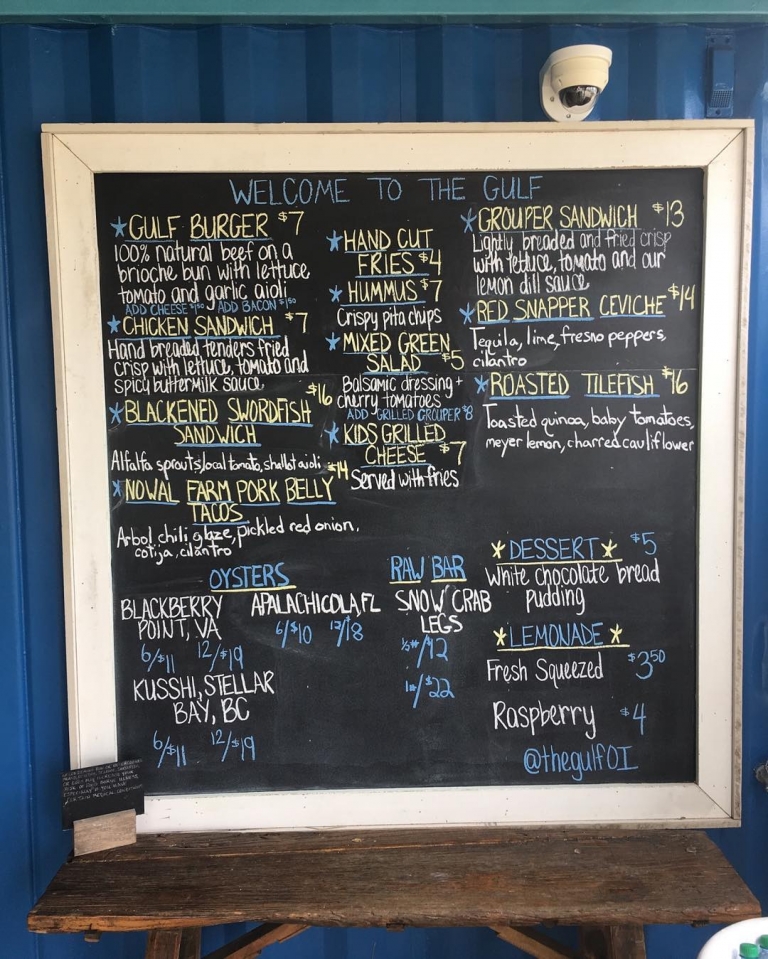 WELCOME TO THE GULF
*GULF BURGER $7
100% natural beef on a
brioche bun with lettuce
tomato and garlic aioli
ADD CHEESE $1.50 ADD BACON $1.50
*CHICKEN SANDWICH $7
Hand breaded tenders fried
crisp with lettuce, tomato and
spicy buttermilk sauce
*BLACKENED SWORDFISH $16
SANDWICH
Alfalfa sprouts, local tomato, shallot aioli
*NOWAL FARM PORK BELLY $14
TACOS
Arbol chili glaze, pickled red onion,
cotija, cilantro
*HAND CUT
FRIES $4
*HUMMUS $7
Crispy pita chips
*MIXED GREEN
SALAD $5
Balsamic dressing +
cherry tomatoes
ADD GRILLED GROUPER $8
*KIDS GRILLED
CHEESE $7
Served with fries
*GROUPER SANDWICH $13
Lightly breaded and fried crisp
with lettuce, tomato and our
lemon dill sauce
*RED SNAPPER CEVICHE $14
Tequila, lime, fresno peppers,
cilantro
*ROASTED TILEFISH $16
Toasted quinoa, baby tomatoes,
meyer lemon, charred cauliflower
OYSTERS
BLACKBERRY
POINT, VA
6/$11 12/$19
KUSSHI, STELLAR
BAY, BC
6/$11 12/$19
APALACHICOLA, FL
6/$10 12/$18
RAW BAR
SNOW CRAB
LEGS
½#/$12
1#/$22
*DESSERT* $5
White chocolate bread
pudding
*LEMONADE*
Fresh Squeezed $3.50
Raspberry $4
@thegulfOI